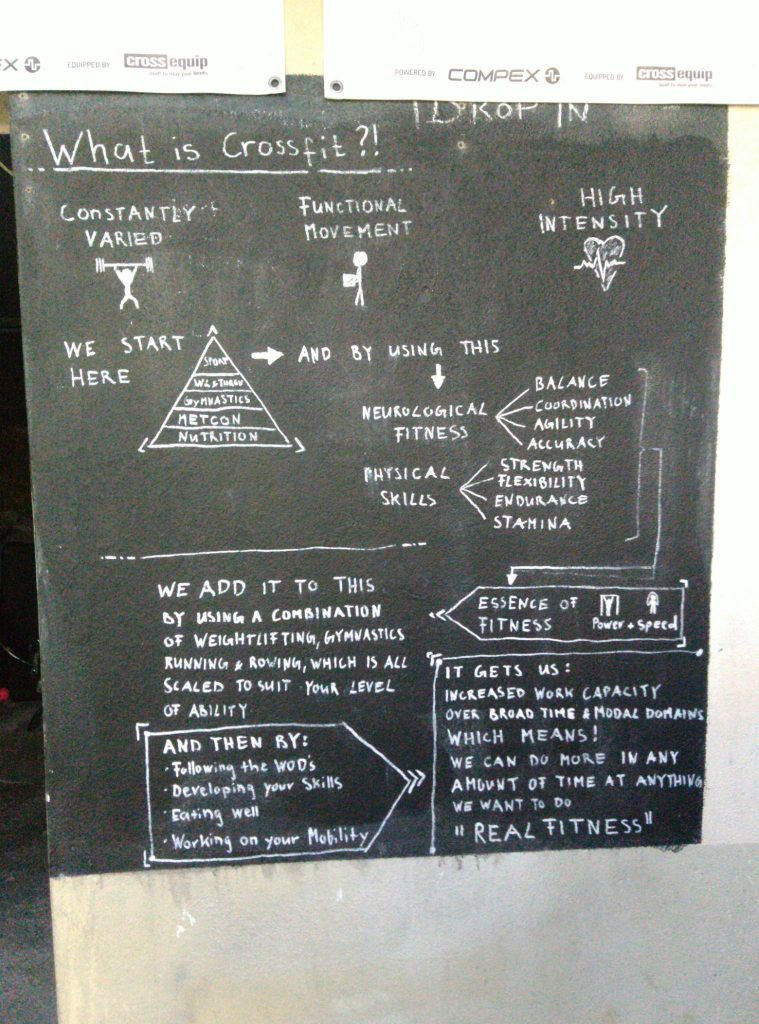 EX
EQUIPPED BY
crossequip
built to max your limits
POWERED BY
COMPEX
EQUIPPED BY
crossequip
DROP IN
What is Crossfit?!
CONSTANTLY
VARIED
FUNCTIONAL
MOVEMENT
HIGH
INTENSITY
WE START
HERE
SPORT
GYMNASTICS
METCON
NUTRITION
AND BY USING THIS
NEUROLOGICAL
FITNESS
BALANCE
COORDINATION
AGILITY
ACCURACY
PHYSICAL
SKILLS
STRENGTH
FLEXIBILITY
ENDURANCE
STAMINA
ESSENCE OF
FITNESS
Power + Speed
WE ADD IT TO THIS
BY USING A COMBINATION
OF WEIGHTLIFTING, GYMNASTICS
RUNNING & ROWING, WHICH IS ALL
SCALED TO SUIT YOUR LEVEL
OF ABILITY
AND THEN BY:
· Following the WOD's
· Developing your Skills
· Eating well
· Working on your Mobility
IT GETS US:
INCREASED WORK CAPACITY
OVER BROAD TIME & MODAL DOMAINS
WHICH MEANS!
WE CAN DO MORE IN ANY
AMOUNT OF TIME AT ANYTHING
WE WANT TO DO
"REAL FITNESS"